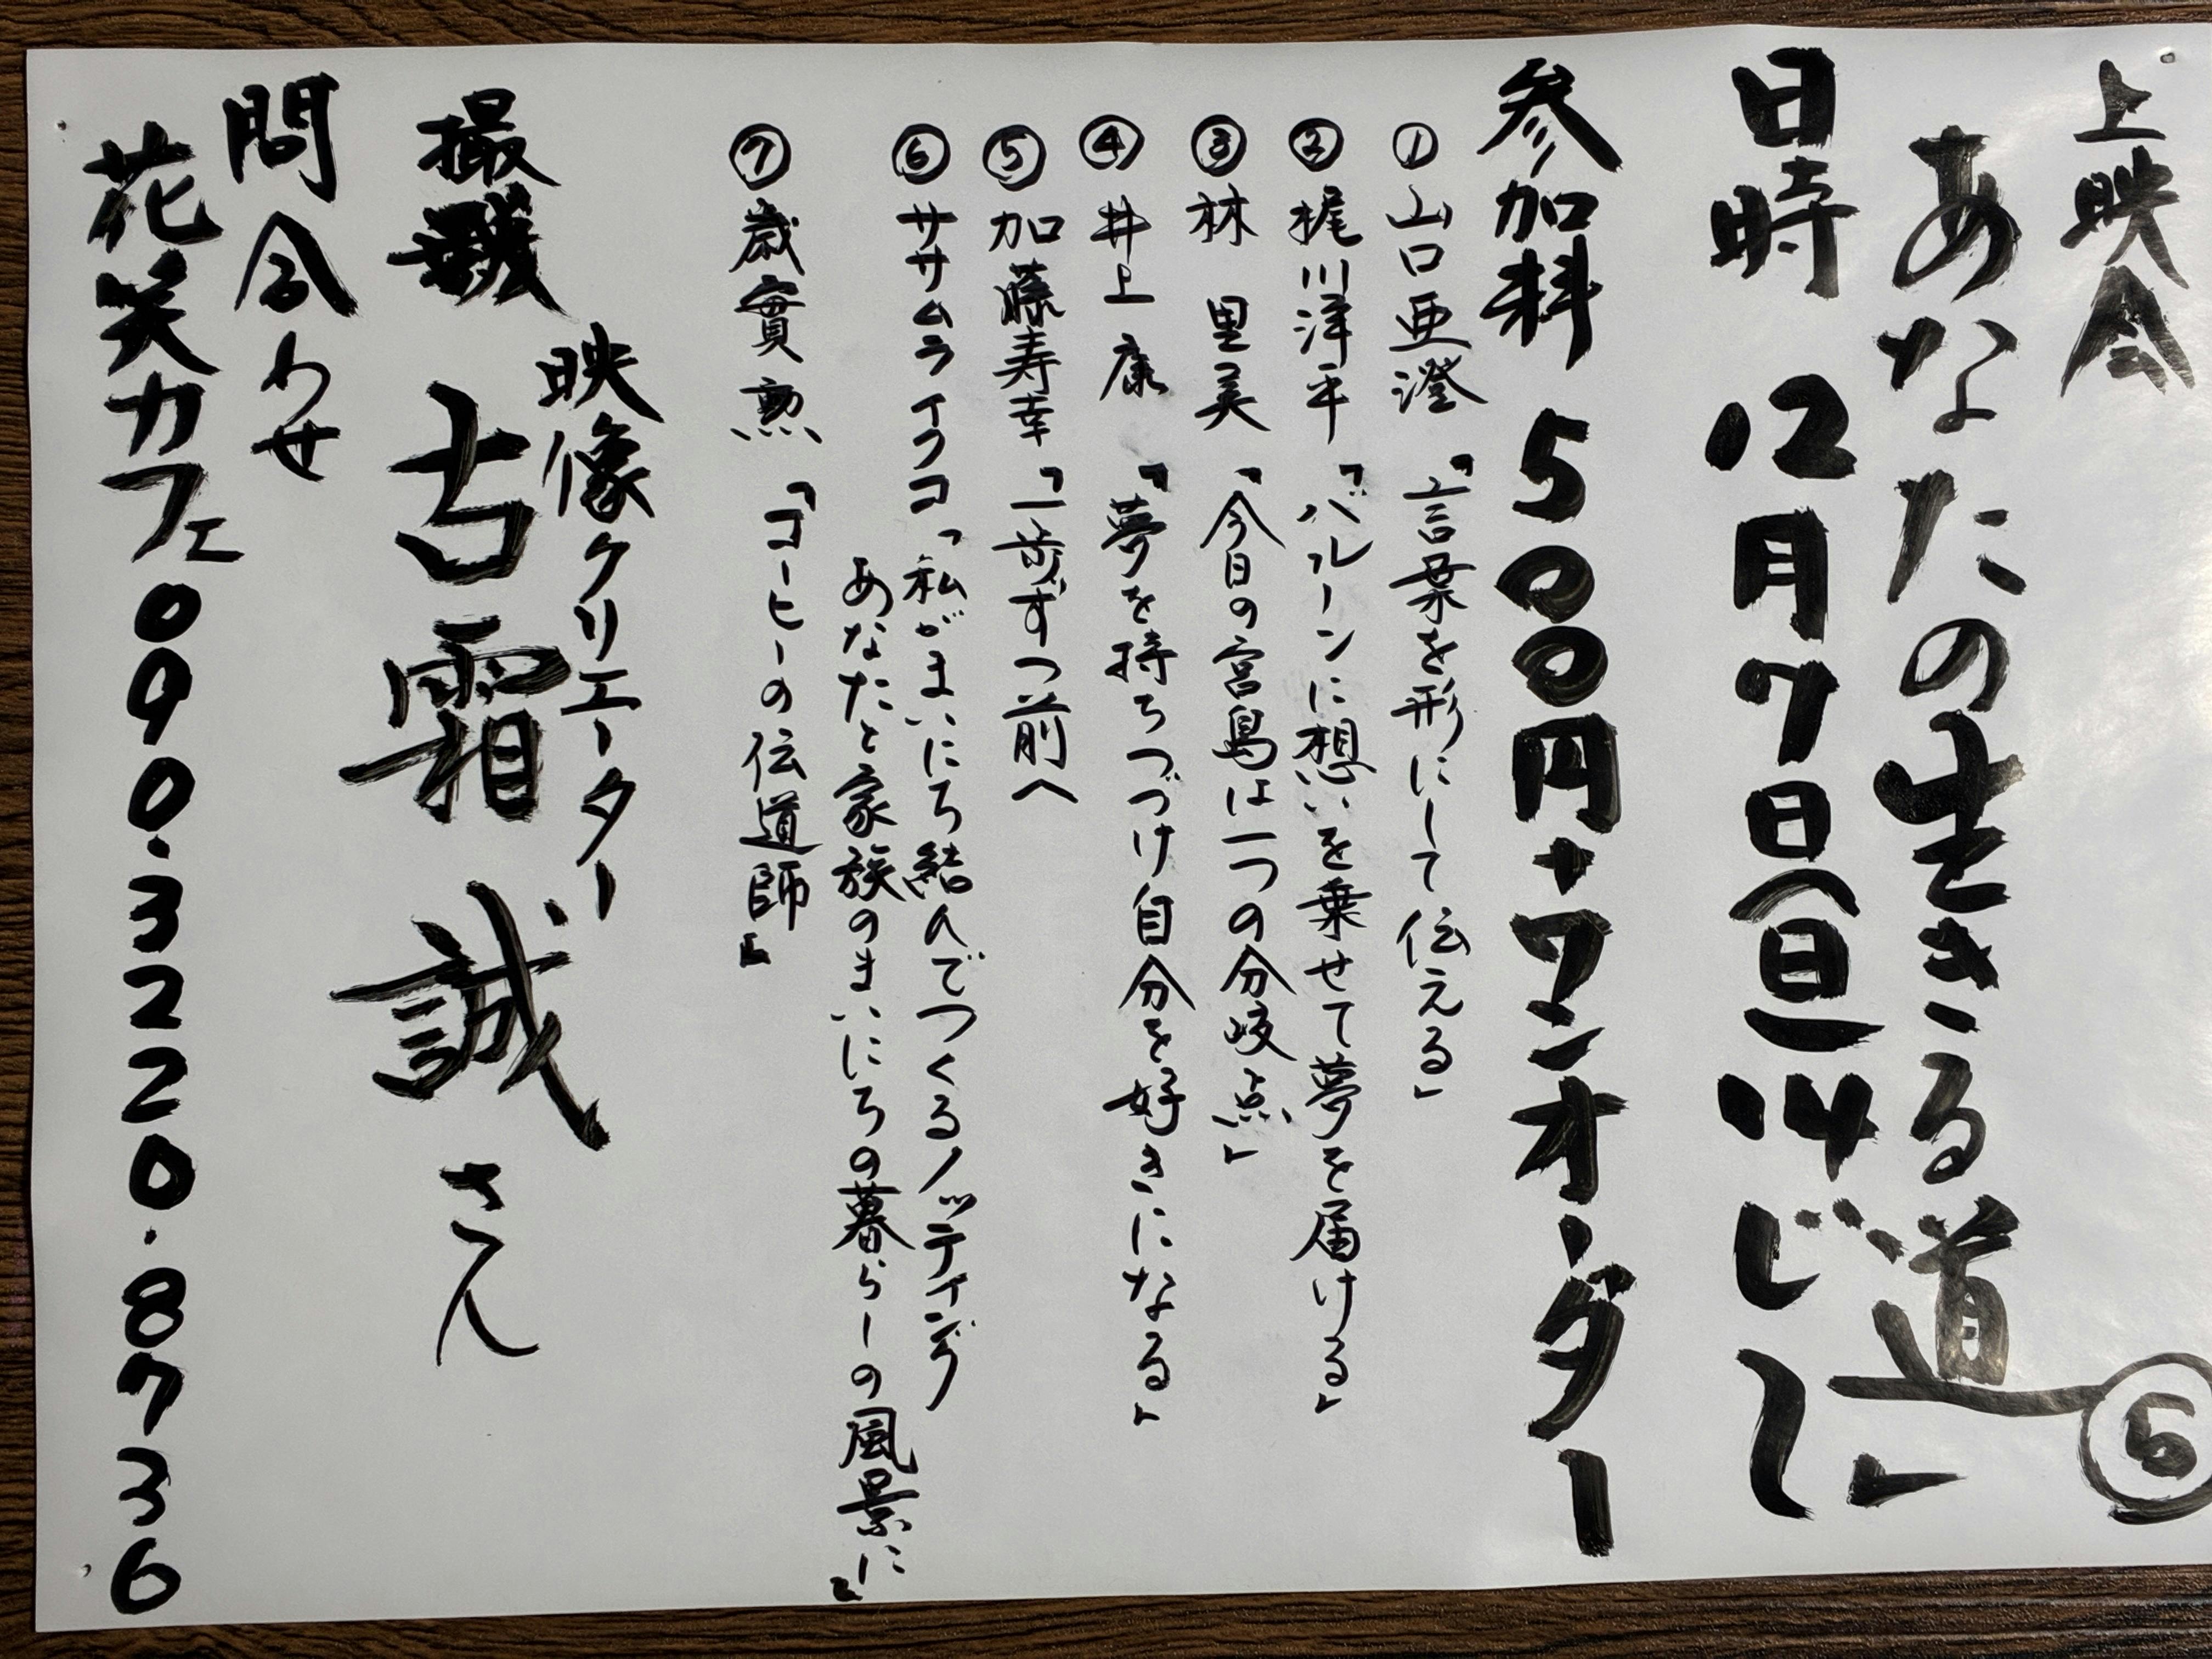 上映会
あなたの生きる道」⑤
日時 12月7日(日)14じ〜
参加料 500円+ワンオーダー
① 山口亜澄 「言葉を形にして伝える」
② 梶川洋平 「バルーンに想いを乗せて夢を届ける」
③ 林 里美 「今日の宮島は一つの分岐点」
④ 井上 康 「夢を持ちつづけ自分を好きになる」
⑤ 加藤寿幸 「一歩ずつ前へ
⑥ ササムライクコ 「私がまいにち結んでつくるノッティング
あなたと家族のまいにちの暮らしの風景に」
⑦ 歳實 勲 「コーヒーの伝道師」
映像クリエーター
撮 古霜 誠 さん
問合わせ
花笑カフェ 090.3220.8736